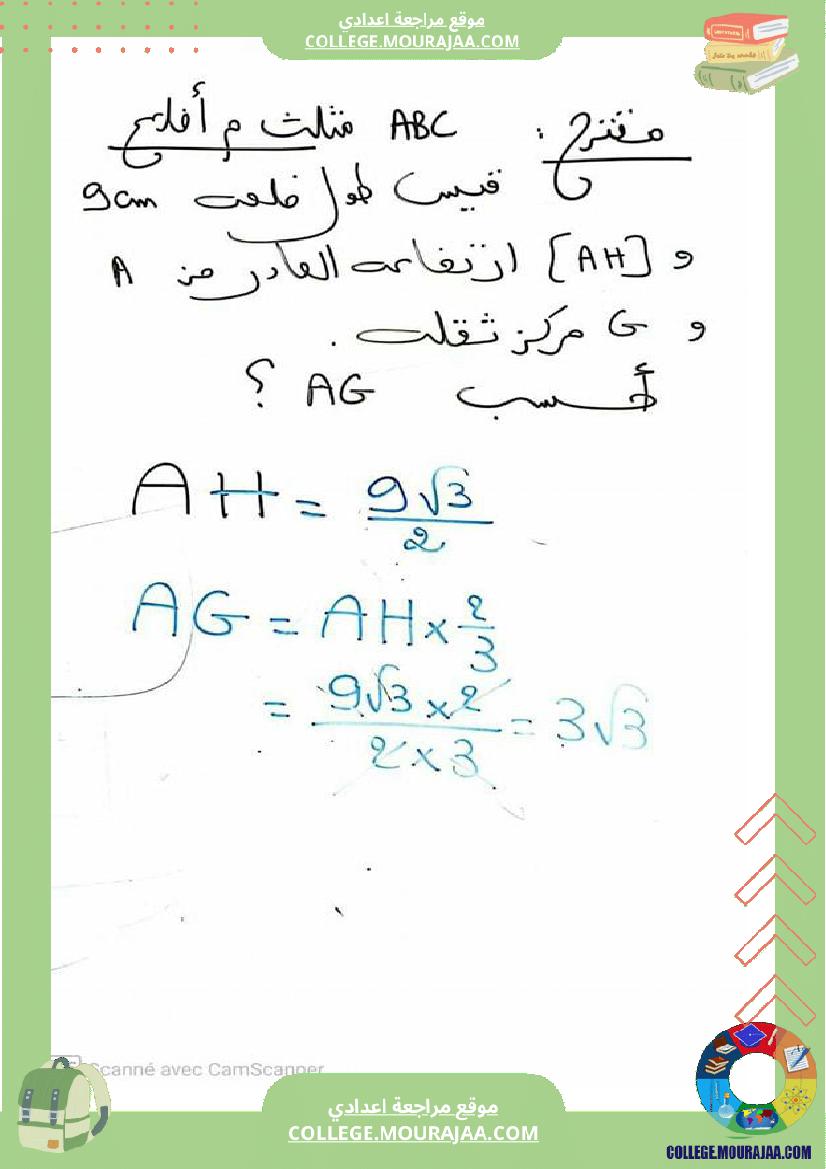 موقع مراجعة اعدادي
COLLEGE.MOURAJAA.COM
مقترح : ABC مثلث م أضلاع
قيس طول ضلعه 9cm
و [AH] ارتفاعه الصادر من A
و G مركز ثقله .
أحسب AG ؟
AH = 9√3/2
AG = AH × 2/3
= 9√3 × 2 / 2 × 3 = 3√3
Scanné avec CamScanner
موقع مراجعة اعدادي
COLLEGE.MOURAJAA.COM
COLLEGE.MOURAJAA.COM